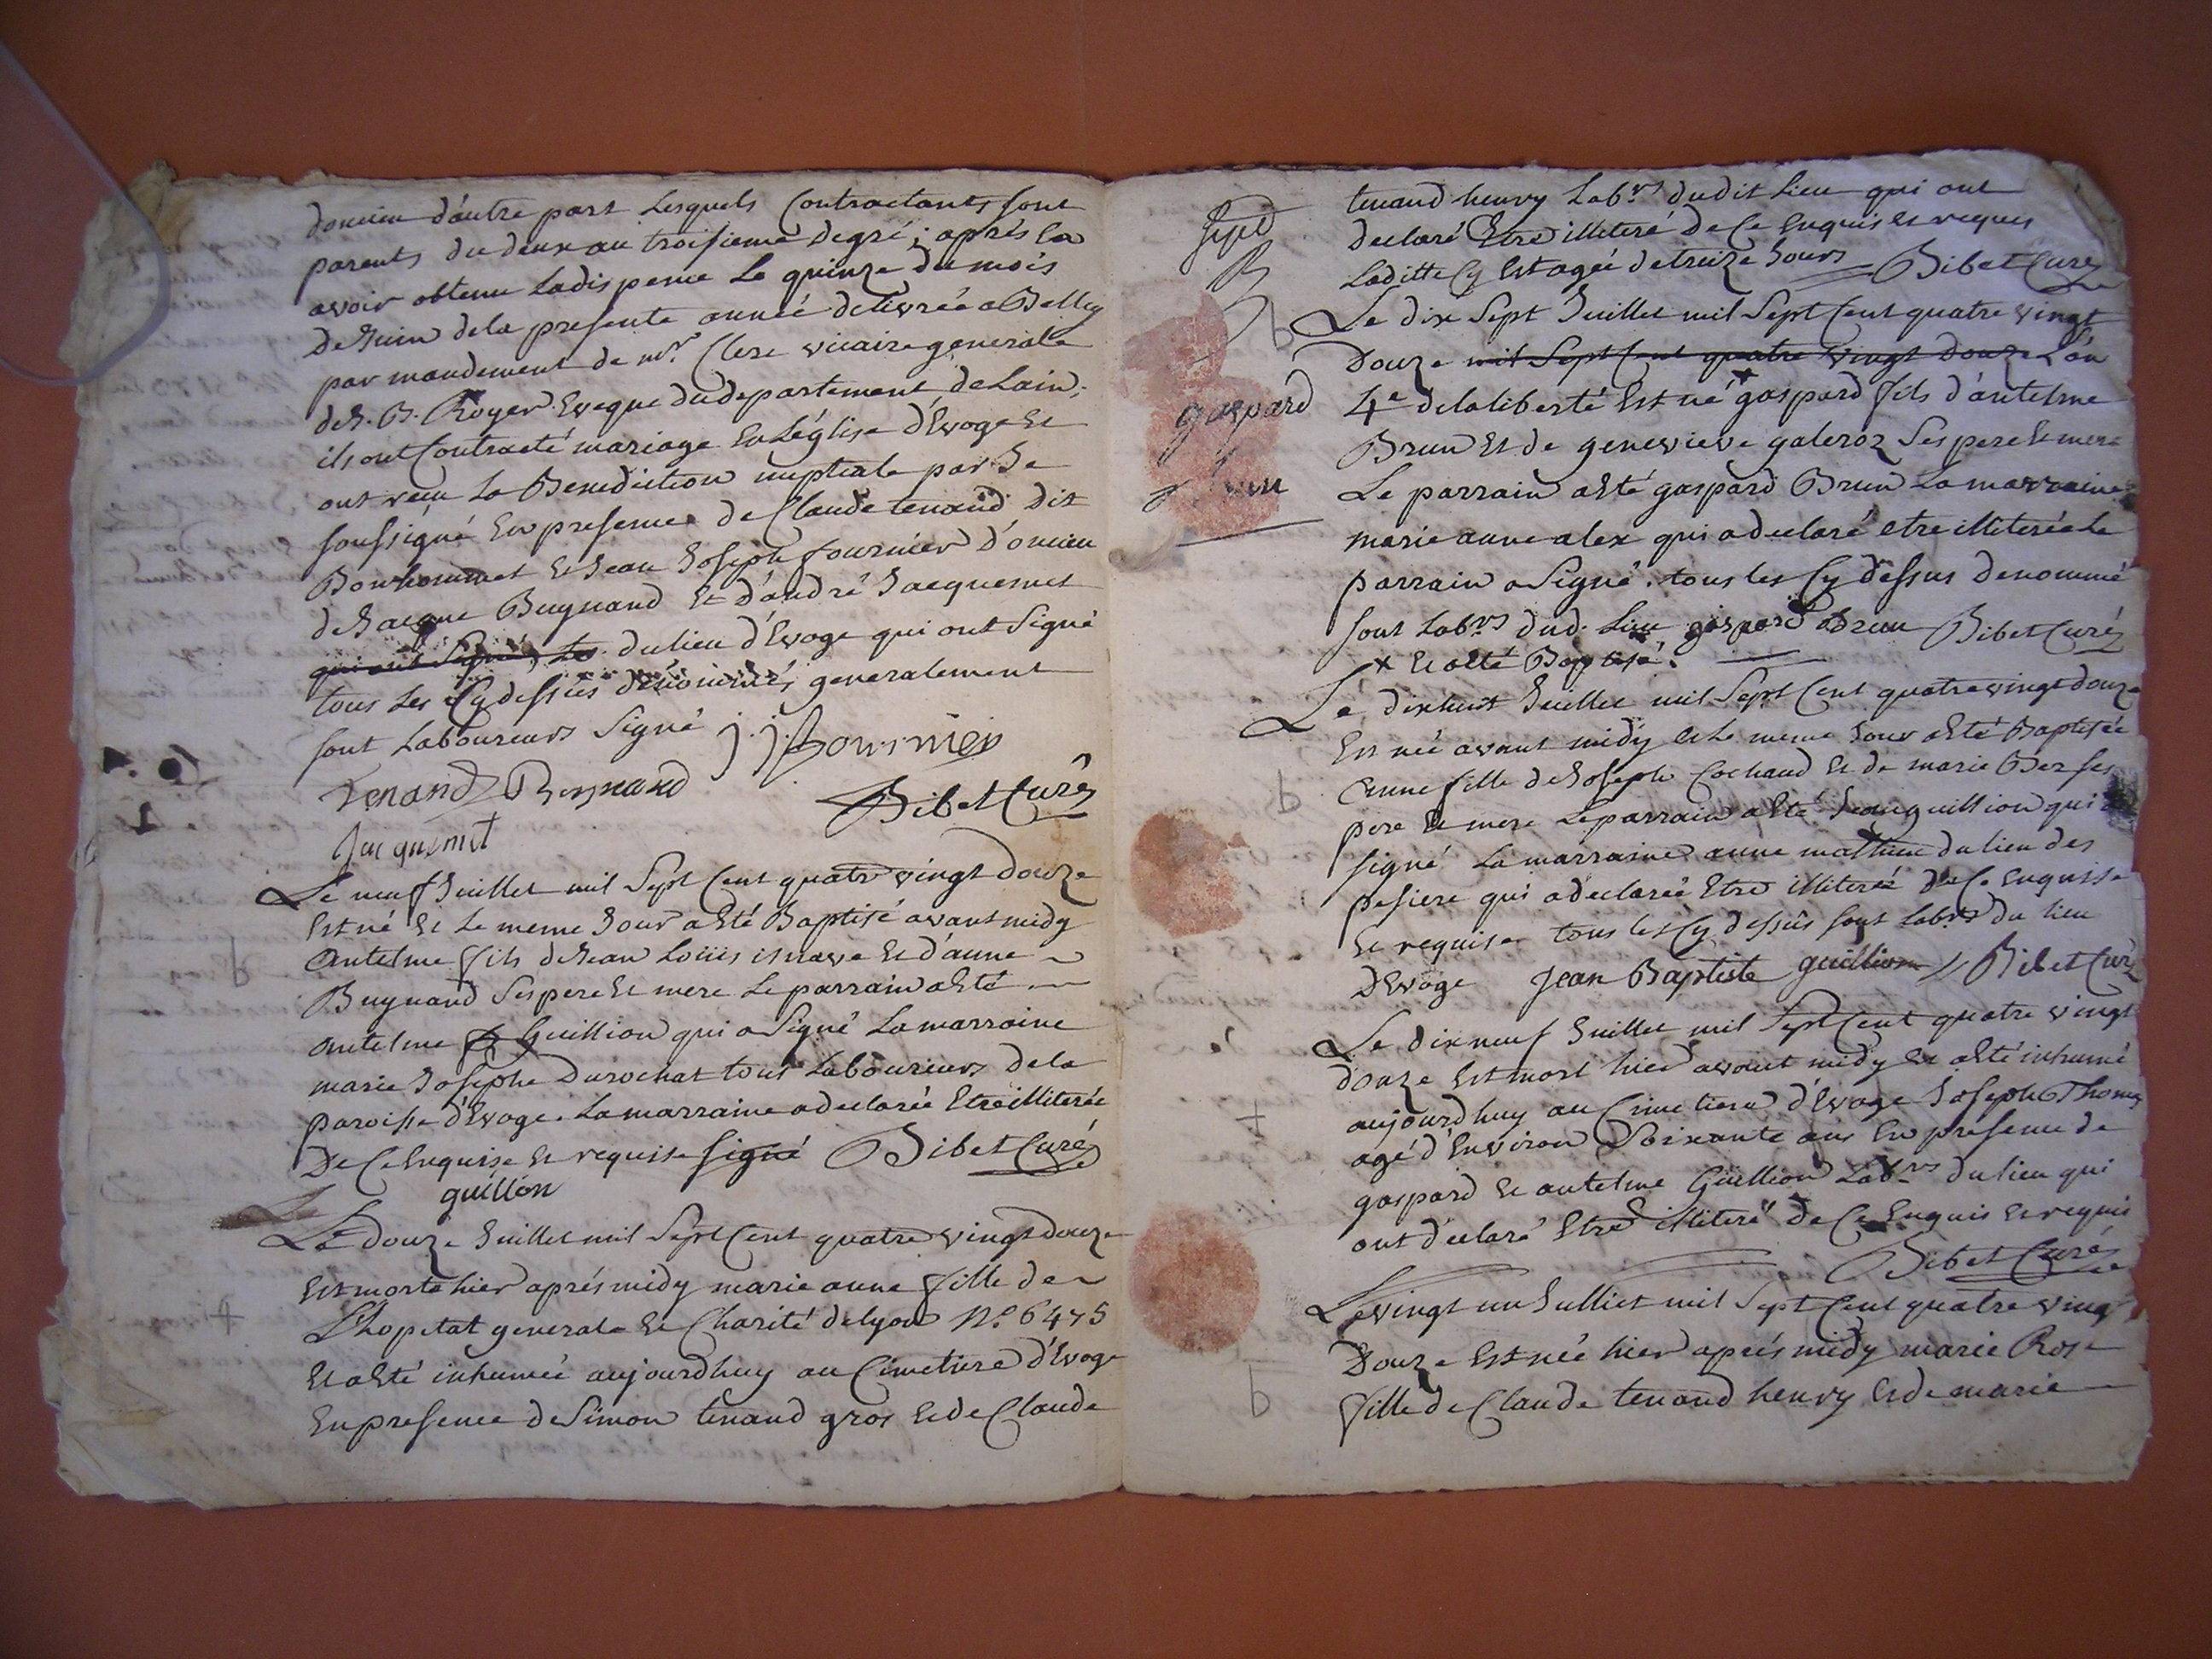 d'oncieu d'autre part Lesquels Contractants sont
parents du deux au troisieme degré ; aprés en
avoir obtenu La dispense Le quinze du mois
de Juin de la presente année delivrée a Belley
par mandement de mr. Clerc vicaire generale
de J. B. Royer Eveque du departement de Lain,
ils ont Contracté mariage En L'église d'Evoge Et
ont recu La Benediction nuptiale par Je
soussigné En presence de Claude tenand dit
Bonhommet Et Jean Joseph fournier d'oncieu
de Jacque Buynand Et d'andré Jacquemet
qui ont Signé, Les du lieu d'Evoge qui ont Signé
tous Les Cy dessus dénommés generalement
sont Laboureurs Signé j. j. fournier
tenand Buynand
Bibet Curé
Jacquemet
Le neuf Juillet mil Sept Cent quatre vingt douze
Est né Et Le meme Jour a Eté Baptisé avant midy
Antelme fils de Jean Loüis Et d'anne
Buynand Ses pere Et mere Le parrain a Eté
antelme Guillion qui a Signé La marraine
marie Josephe Durochat tous Laboureurs de la
paroisse d'Evoge. La marraine a declarée Etre illiterée
De Ce Enquise Et requise signé Bibet Curé
guillion
Le douze Juillet mil Sept Cent quatre vingt douze
Est morte hier aprés midy marie anne fille de
L'hopital generale Et Charité de lyon N.o 6475
Et a Eté inhumée aujourdhuy au Cimetiere d'Evoge
En presence de Simon tenand gros Et de Claude
tenand henry Lab.rs dudit Lieu qui ont
declaré Etre illiteré de Ce Enquis Et requis
Laditte Cy Est agée de treize Jours Bibet Curé
B
b
Le dix Sept Juillet mil Sept Cent quatre vingt
Douze mil Sept Cent quatre vingt Douze L'an
4e de la liberté Est né * gaspard fils d'antelme
gaspard
Brun Et de genevieve galeroz Ses pere Et mere
Brun
Le parrain a Eté gaspard Brun La marraine
marie anne alex qui a declaré etre illiterée Le
parrain a Signé. tous les Cy dessus denommé
sont Lab.rs dud. Lieu gaspard Brun Bibet Curé
x Et a Eté Baptisé.
Le dixhuit Juillet mil Sept Cent quatre vingt douze
Est née avant midy Et Le meme Jour a Eté Baptisée
b
anne fille de Joseph Cochand Et de marie Ber ses
pere Et mere Le parrain a Eté Jean guillion qui a
signé La marraine anne mathieu du lieu des
pesiere qui a declarée Etre illiterée de Ce Enquise
Et requise tous les Cy dessus sont Lab.rs du lieu
d'Evoge Jean Baptiste guillion Bibet Curé
Le dixneuf Juillet mil Sept Cent quatre vingt
douze Est mort hier avant midy Et a Eté inhumé
+
aujourdhuy au Cimetiere d'Evoge Joseph Thomas
agé d'Environ Soixante ans En presence de
gaspard Et antelme Guillion Lab.rs du lieu qui
ont declaré Etre illiteré de Ce Enquis Et requis
Bibet Curé
Le vingt un Julliet mil Sept Cent quatre vingt
Douze Est née hier aprés midy marie Rose
b
fille de Claude tenand henry Et de marie